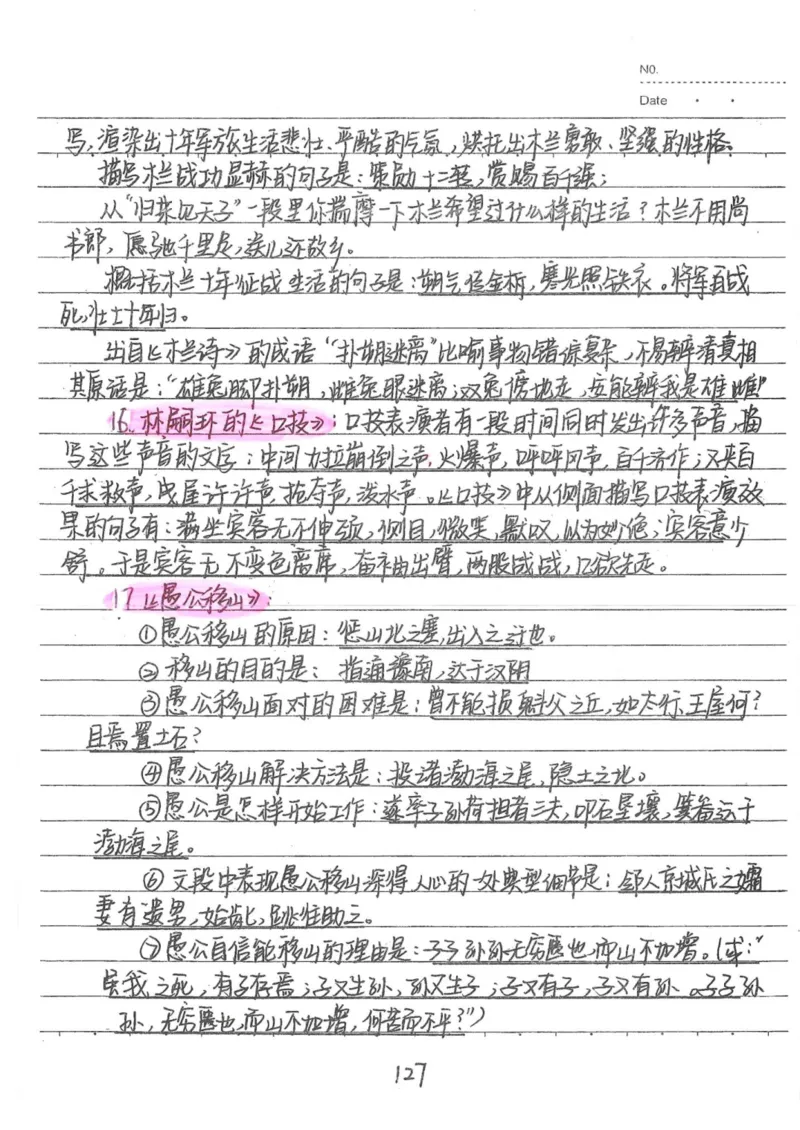 NO.
Date
写,渲染出十年军旅生活悲壮、严酷的气氛,烘托出木兰勇敢、坚强的性格。
描写木兰战功显赫的句子是:策勋十二转,赏赐百千强;
从“归来见天子”一段里你揣摩一下木兰希望过什么样的生活?木兰不用尚
书郎,愿驰千里足,送儿还故乡。
概括木兰十年征战生活的句子是:朔气传金柝,寒光照铁衣。将军百战
死,壮士十年归。
出自《木兰诗》的成语“扑朔迷离”比喻事物错综复杂,不易辨清真相
其原话是:“雄兔脚扑朔,雌兔眼迷离;双兔傍地走,安能辨我是雄雌”
16.林嗣环的《口技》:口技表演者有一段时间同时发出许多声音,描
写这些声音的文字:中间力拉崩倒之声,火爆声,呼呼风声,百千齐作;又夹百
千求救声,曳屋许许声,抢夺声,泼水声。《口技》中从侧面描写口技表演效
果的句子有:满坐宾客无不伸颈,侧目,微笑,默叹,以为妙绝;宾客意少
舒。于是宾客无不变色离席,奋袖出臂,两股战战,几欲先走。
17.《愚公移山》:
①愚公移山的原因:惩山北之塞,出入之迂也。
②移山的目的是:指通豫南,达于汉阴
③愚公移山面对的困难是:曾不能损魁父之丘,如太行、王屋何?
且焉置土石?
④愚公移山解决方法是:投诸渤海之尾,隐土之北。
⑤愚公是怎样开始工作:遂率子孙荷担者三夫,叩石垦壤,箕畚运于
渤海之尾。
⑥文段中表现愚公移山深得人心的一处典型细节是:邻人京城氏之孀
妻有遗男,始龀,跳往助之。
⑦愚公自信能移山的理由是:子子孙孙无穷匮也,而山不加增。(或:“
虽我之死,有子存焉;子又生孙,孙又生子;子又有子,子又有孙。子子孙
孙,无穷匮也,而山不加增,何苦而不平?”)
127